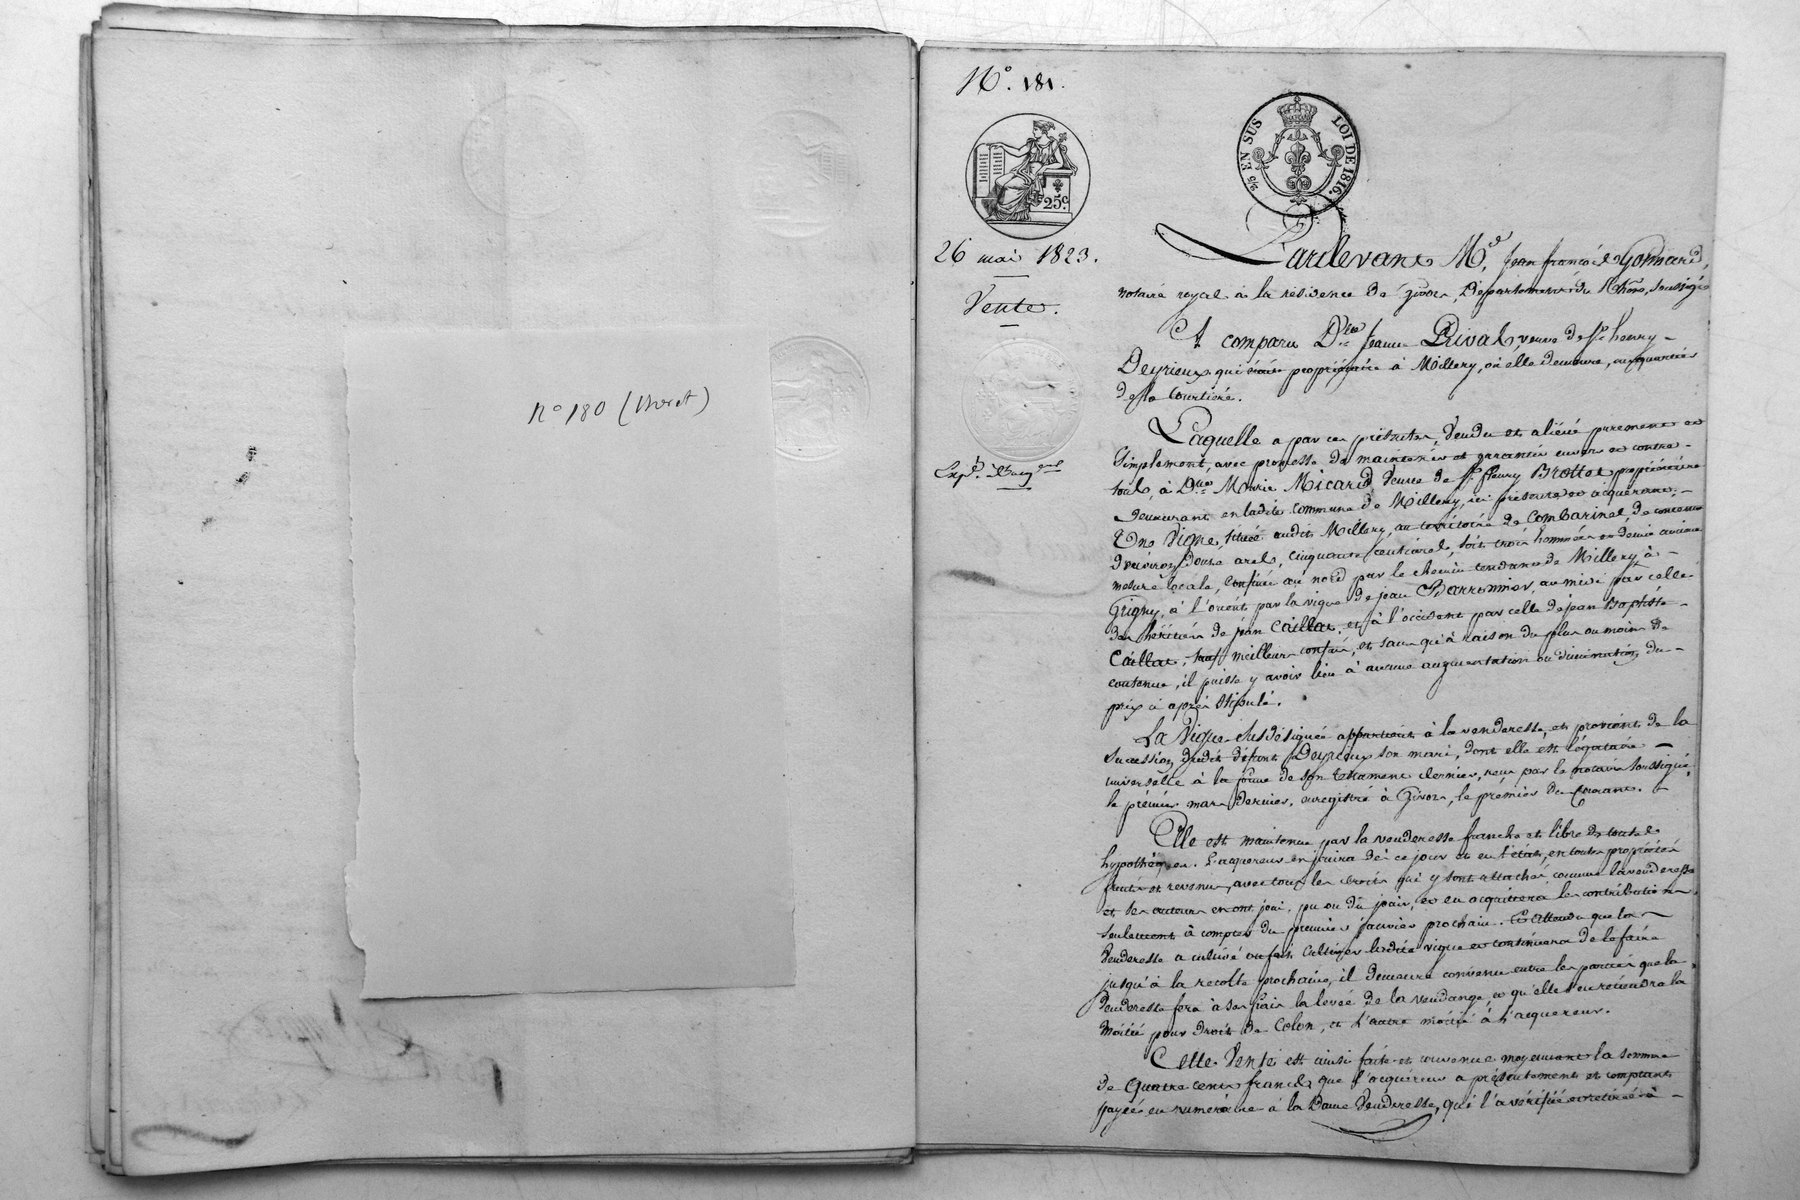 n° 180 (Brevet)
N°. 181.
2/5 EN SUS LOI DE 1816.
25c
26 mai 1823.
Vente.
Pardevant Me. Jean françois Gonnard,
notaire royal à la résidence de Givors, Département du Rhône, soussigné
A comparu Dlle Jeanne Duval, veuve de Sr henry
Deyrieux qui était propriétaire à Millery, où elle demeure, au quartier
de la Courtière.
Laquelle a par ces présentes, Vendu et aliéné purement et
Simplement, avec promesse de maintenir et garantir envers et contre
tous, à Dme Marie Micard Veuve de Sr fleury Brottet propriétaire
demeurant en ladite commune de Millery, ici présente et acquérant,
Une Vigne, située audit Millery, au territoire de Combarinel de contenue
d'environ Douze ares, cinquante centiares, soit trois hommées et demie ancienne
mesure locale, Confinée au nord par le chemin tendant de Millery à
Grigny, à l'orient par la vigne de jean Barronnier, au midi par celle
des héritiers de jean Caillat, et à l'occident par celle de jean Baptiste
Caillat, sauf meilleurs confins, et sans qu'à raison du plus ou moins de
contenue, il puisse y avoir lieu à aucune augmentation ou diminution du
prix ci après stipulé.
La Vigne Susdésignée appartient à la venderesse, et provient de la
Succession dudit défunt Deyrieux son mari, dont elle est légataire
universelle à la forme de son testament dernier, reçu par le notaire soussigné,
le premier mars dernier, enregistré à Givors, le premier du Courant.
Elle est maintenue par la venderesse franche et libre de toutes
hypothèques. L'acquereur en jouira dès ce jour et en l'état, en toute propriété
fruits et revenus, avec tous les Droits qui y sont attachés comme la venderesse
et ses auteurs en ont joui, pu ou dû jouir, et en acquittera les contributions
seulement à compter du premier janvier prochain. Et Attendu que la
Venderesse a cultivé ou fait Cultiver ladite vigne et continuera de le faire
jusqu'à la recolte prochaine, il demeure convenu entre les parties que la
Venderesse fera à ses frais la levée de la vendange, et qu'elle en retiendra la
Moitié pour droit de Colon, et l'autre moitié à l'acquereur.
Cette Vente est ainsi faite et convenue moyennant la somme
de Quatre cents francs que l'acquéreur a présentement et comptant
payée en numéraire à la Dame Venderesse, qui l'a vérifiée et retirée à